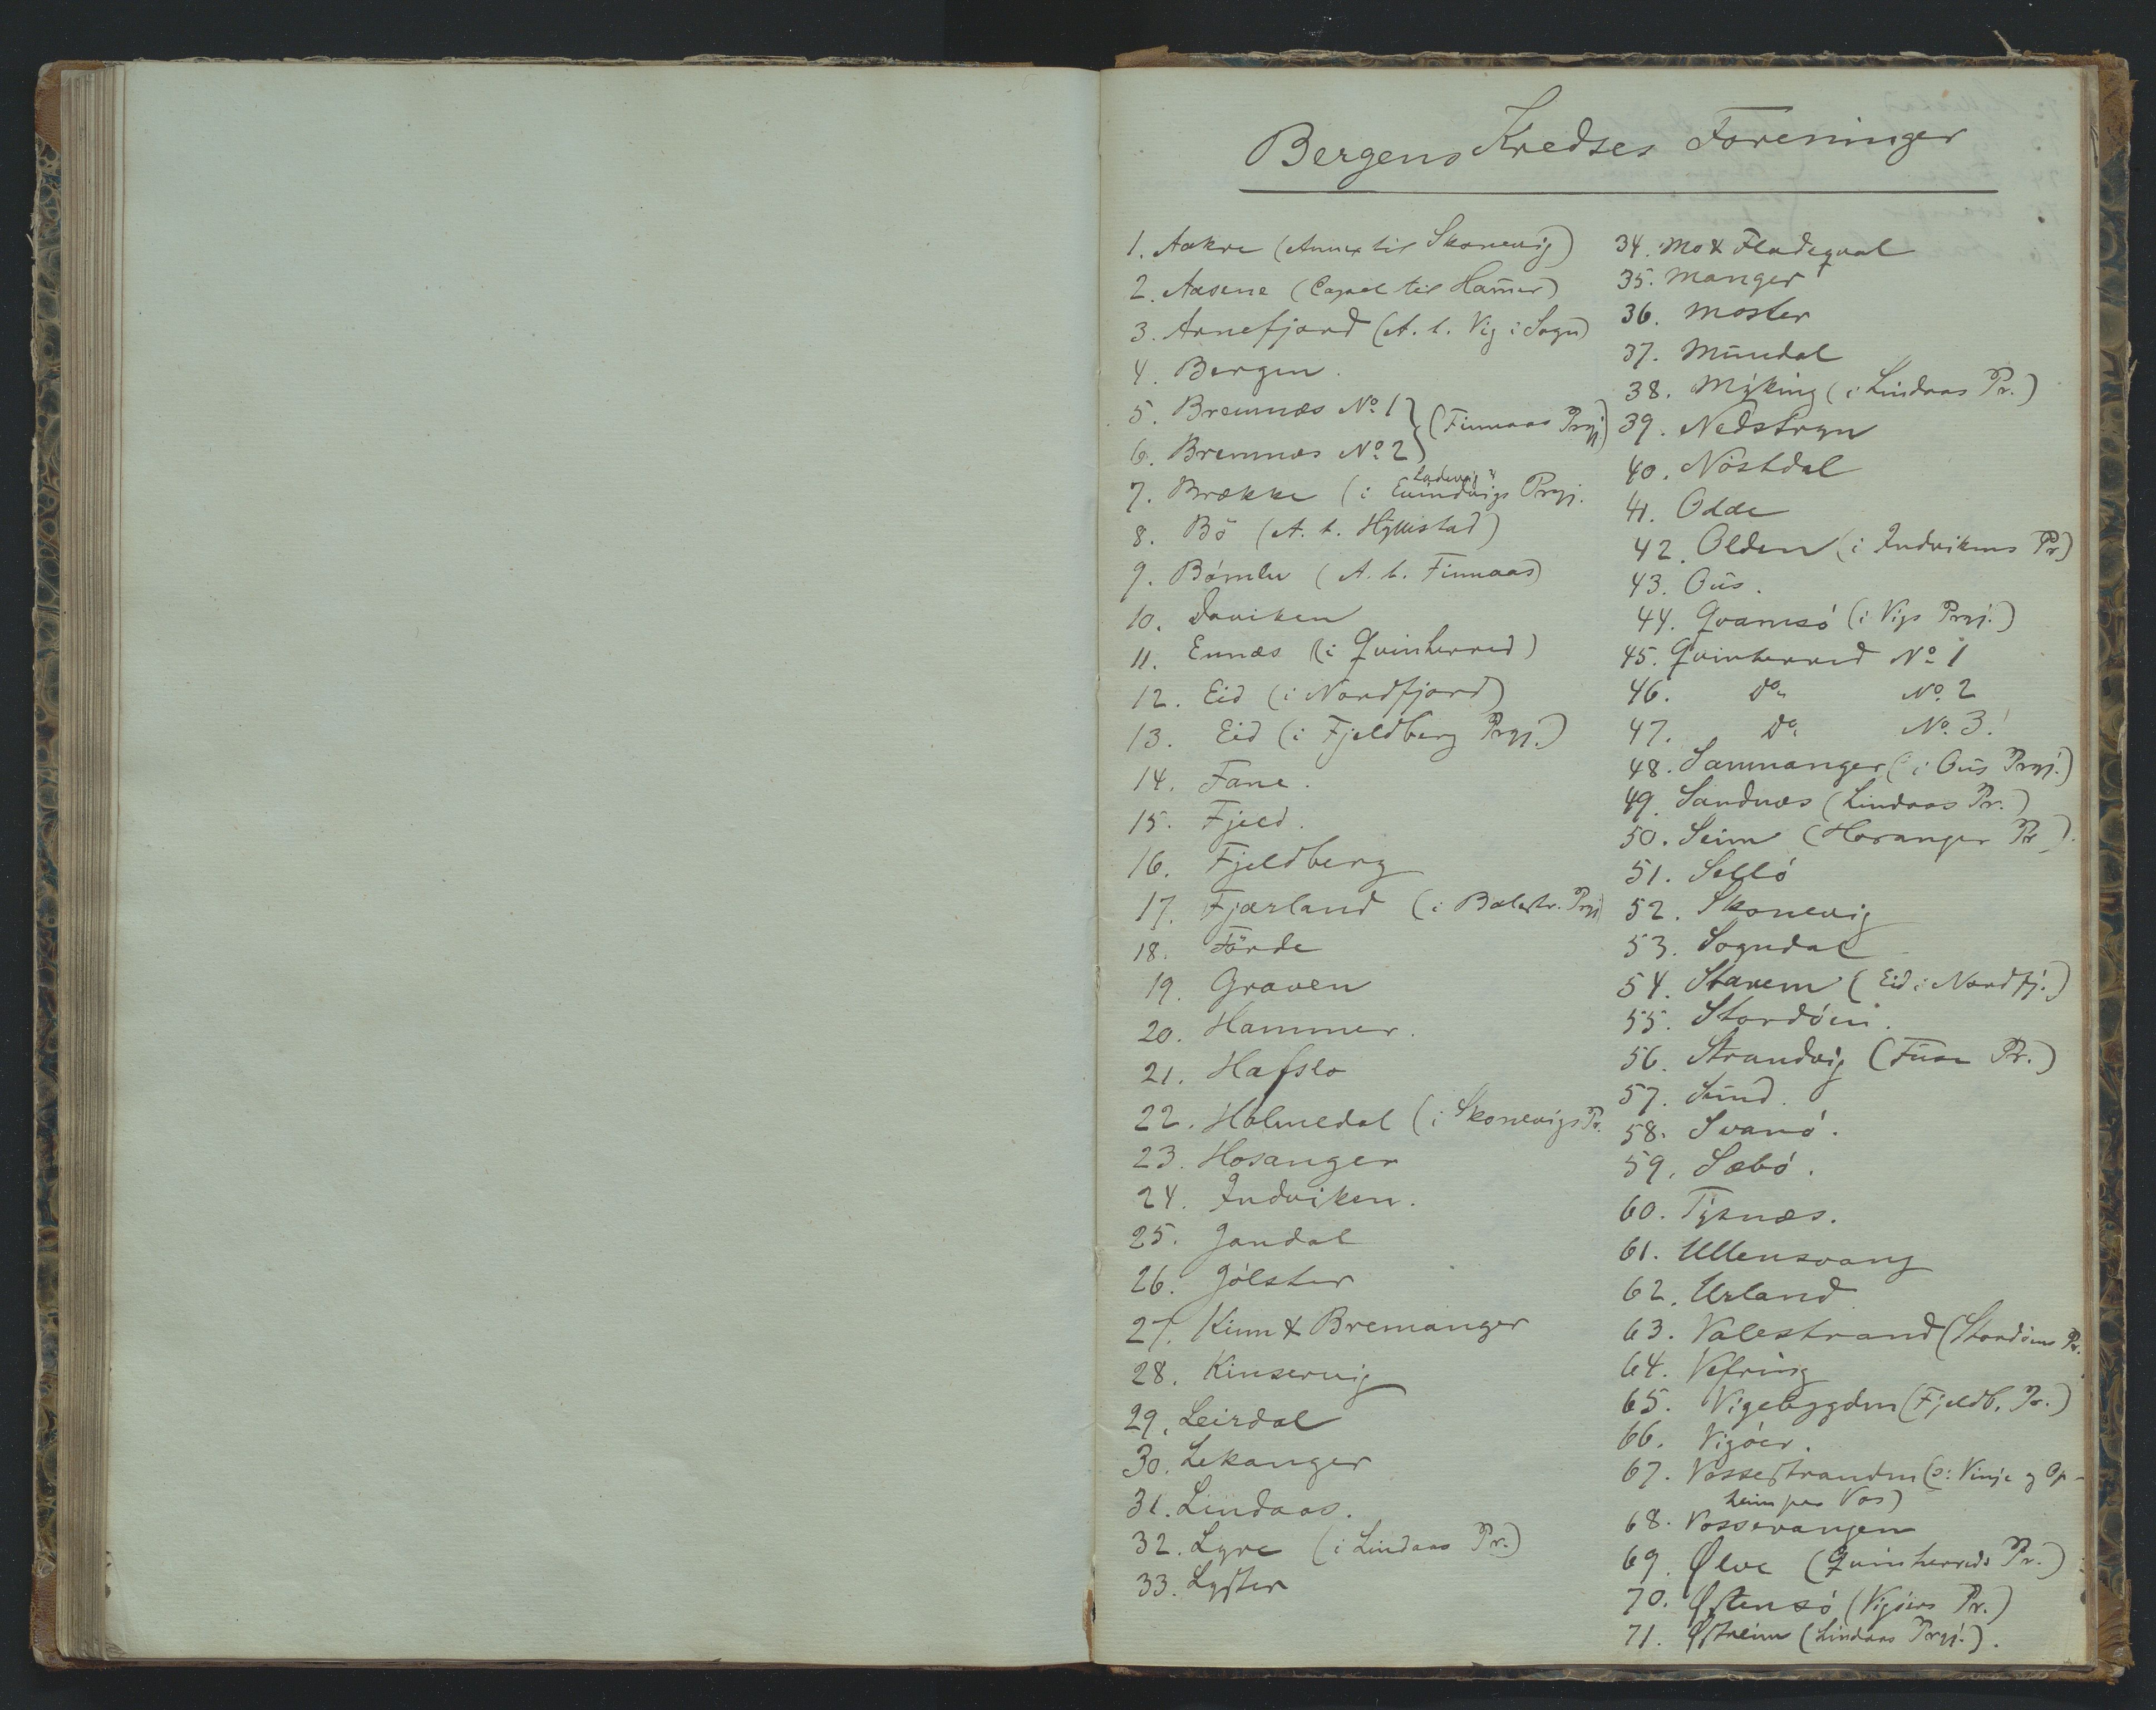 Bergens Kredses Foreninger
1. Aakre (Annex til Skonevig)
2. Aasene (Capel til Ham̄er)
3. Arnefjord (A. t. Vig i Sogn)
4. Bergen.
5. Bremnæs No. 1 } (Finnaas Prgj)
6. Bremnæs No. 2 }
Ladevig
7. Brække (i Evindvigs Prgj.
8. Bö (A. t. Hyllestad)
9. Bómlu (A. t. Finnaas)
10. Daviken
11. Ennæs (i Qvinherred)
12. Eid (i Nordfjord)
13. Eid (i Fjeldberg Prgj.)
14. Fane.
15. Fjeld.
16. Fjeldberg
17. Fjærland (i Balestr. Prgj)
18. Förde
19. Graven
20. Hammer.
21. Hafslo
22. Holmedal (i Skonevigs Pr.
23. Hosanger
24. Indviken.
25. Jondal
26. Jólster
27. Kinn & Bremanger
28. Kinservig
29. Leirdal
30. Lekanger
31. Lindaas.
32. Lyre (i Lindaas Pr.)
33. Lyster
34. Mo & Fladeqval
35. Manger
36. Moster
37. Mundal
38. Myking (i Lindaas Pr.)
39. Nedstryn
40. Nöstdal
41. Odde
42. Olden (i Indvikens Pr)
43. Ous.
44. Qvamsó (i Vigs Prgj.)
45. Qvinherred No. 1
46. Do. No. 2
47. Do. No. 3.
48. Sammanger (i Ous Prgj.)
49. Sandnæs (Lindaas Pr.)
50. Seim (Hosanger Pr.).
51.Selló
52. Skonevig
53. Sogndal
54. Starem (Eid i Nordfj.)
55. Stordóen.
56. Strandvig (Fuse Pr.)
57. Sund.
58. Svanó.
59. Sæbó.
60. Tysnæs.
61. Ullensvang
62. Urland
63. Valestrand (Stordóens Pr.
64. Vefring
65. Vigebygden (Fjeldb. Pr.)
66. Vigóer.
67. Vossestranden (ɔ: Vinje og Op-
heim paa Vos)
68. Vossevangen
69. Ølve (Qvinherreds Pr.)
70. Østensó (Vigóers Pr.)
71. Østreim (Lindaas Prgj.).